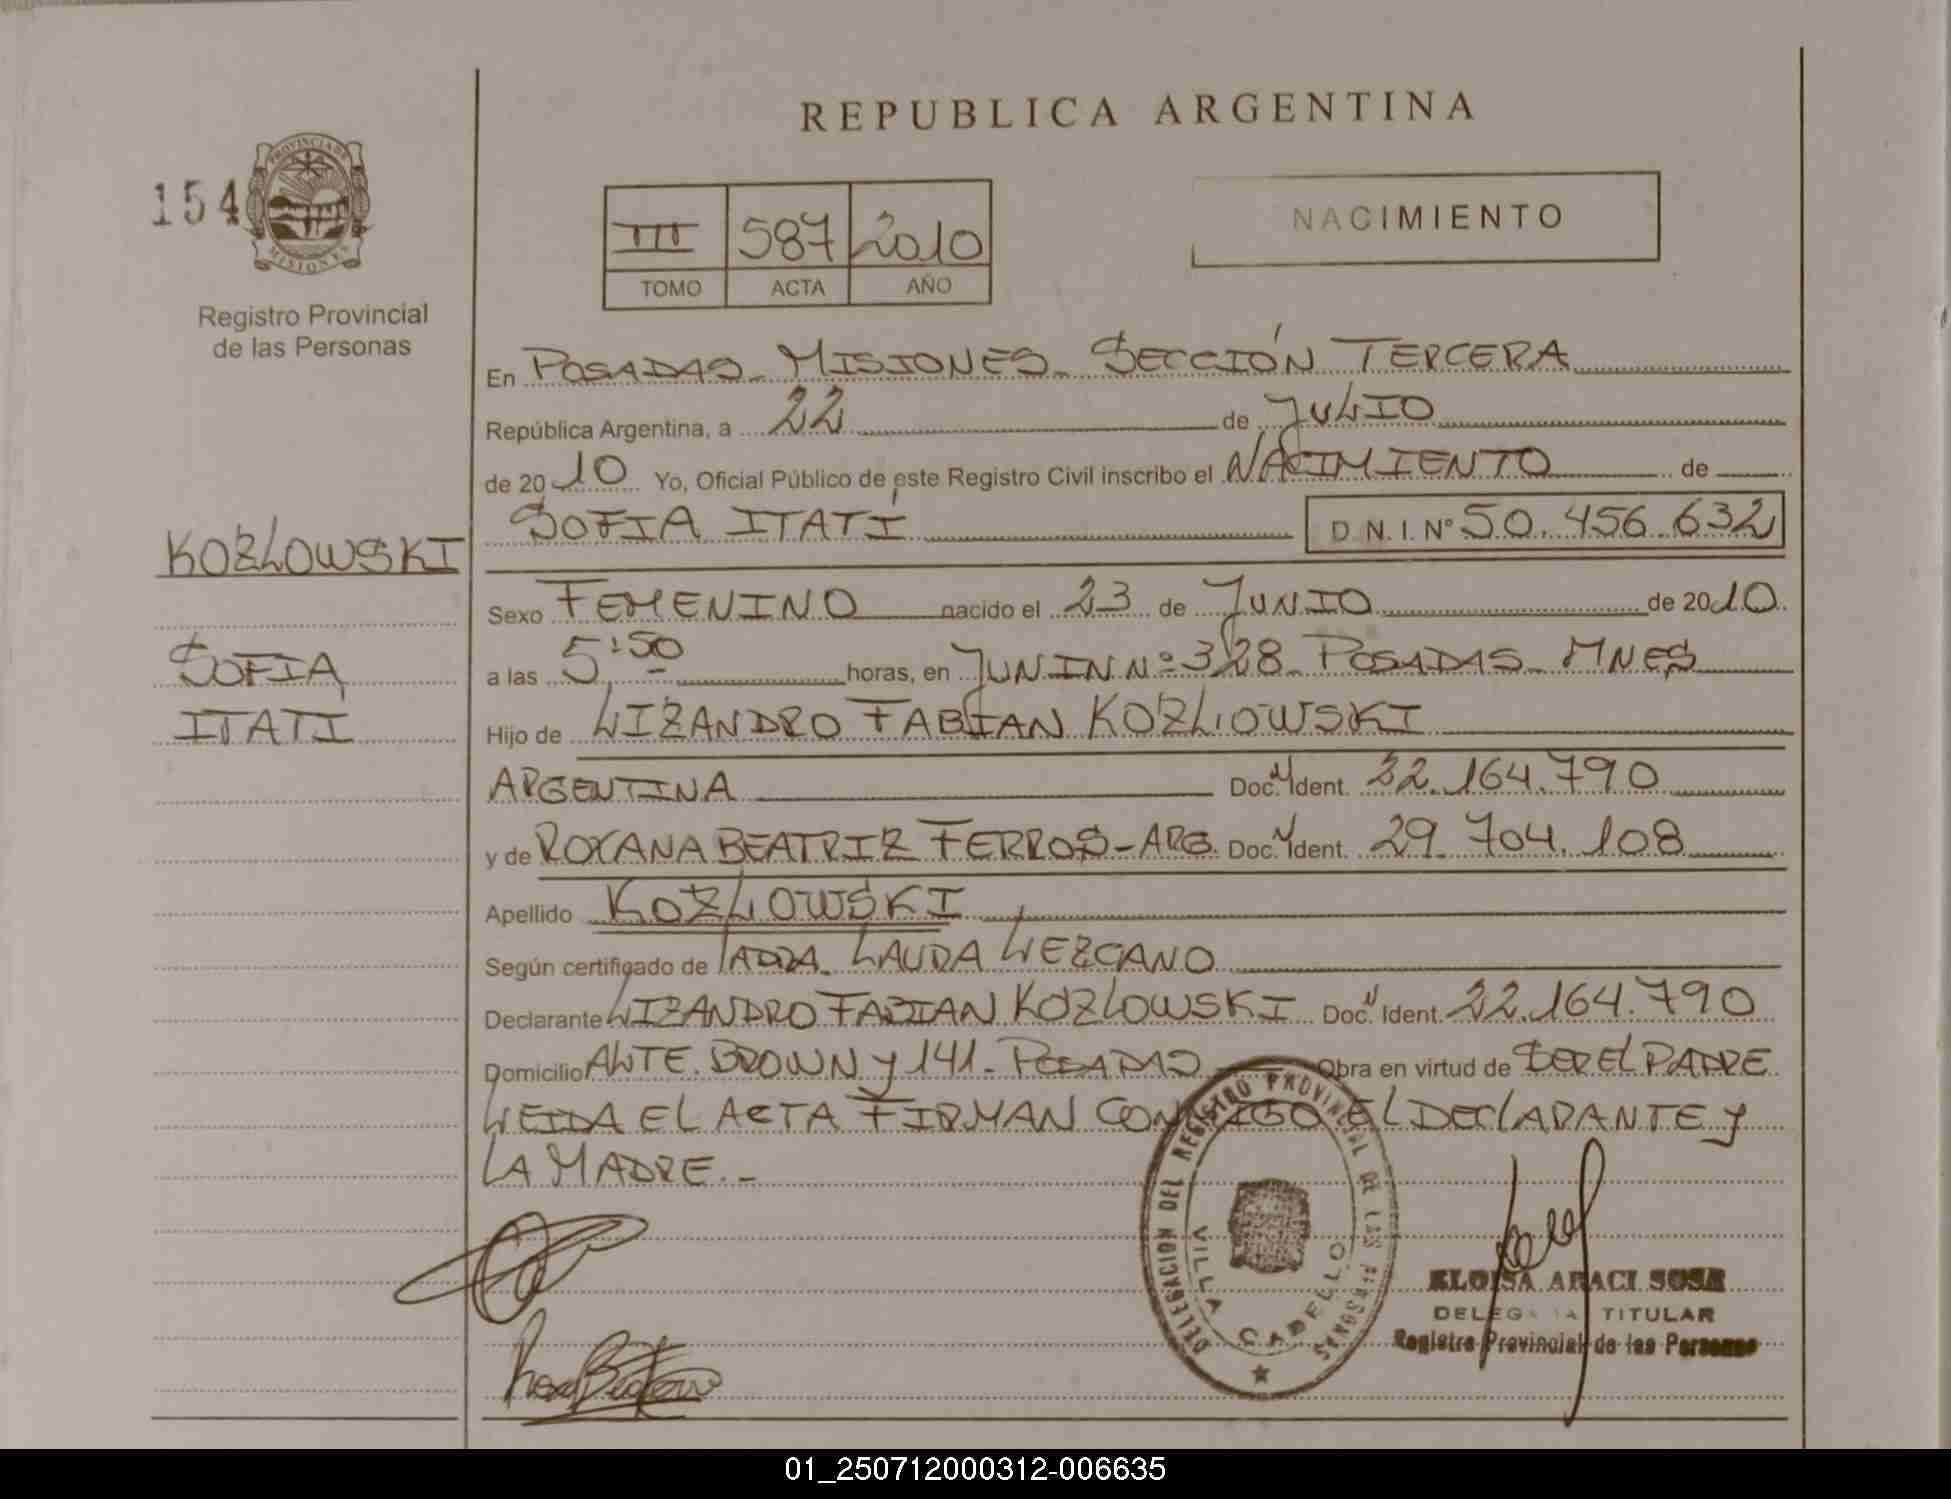 REPUBLICA ARGENTINA
154
PROVINCIA DE
MISIONES
Registro Provincial
de las Personas
III 587 2010
TOMO ACTA AÑO
NACIMIENTO
En POSADAS - MISIONES - SECCIÓN TERCERA
República Argentina, a 22 de JULIO
de 2010 Yo, Oficial Público de este Registro Civil inscribo el NACIMIENTO de
SOFÍA ITATÍ D.N.I. Nº 50.456.632
KOZLOWSKI
SOFIA
ITATI
Sexo FEMENINO nacido el 23 de JUNIO de 2010
a las 5:50 horas, en JUNIN Nº 328 - POSADAS - MNES
Hijo de LIZANDRO FABIAN KOZLOWSKI
ARGENTINA Doc. N Ident. 22.164.790
y de ROXANA BEATRIZ FERROS - ARG. Doc. N Ident. 29.704.108
Apellido KOZLOWSKI
Según certificado de LAURA LEZCANO
Declarante LIZANDRO FABIAN KOZLOWSKI Doc. N Ident. 22.164.790
Domicilio ALTE. BROWN y 141 - POSADAS Obra en virtud de SER EL PADRE
LEIDA EL ACTA FIRMAN CONMIGO EL DECLARANTE y
LA MADRE. -
DELEGACION DEL REGISTRO PROVINCIAL DE LAS PERSONAS
VILLA CABELLO
ELOISA ARACI SOSA
DELEGADA TITULAR
Registro Provincial de las Personas
01_250712000312-006635